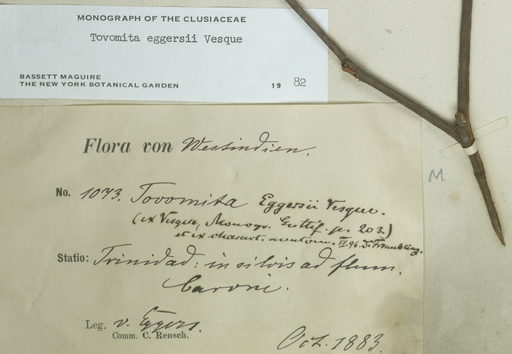 MONOGRAPH OF THE CLUSIACEAE
Tovomita eggersii Vesque
BASSETT MAGUIRE
THE NEW YORK BOTANICAL GARDEN 1982
Flora von Westindien.
No. 1073. Tovomita Eggersii Vesque.
(ex Vesque, Monogr. Guttif. p. 202.)
et ex charact. anatom.
M.
Statio: Trinidad: in silvis ad flum.
Caroni.
Leg. v. Eggers.
Comm. C. Rensch.
Oct. 1883.